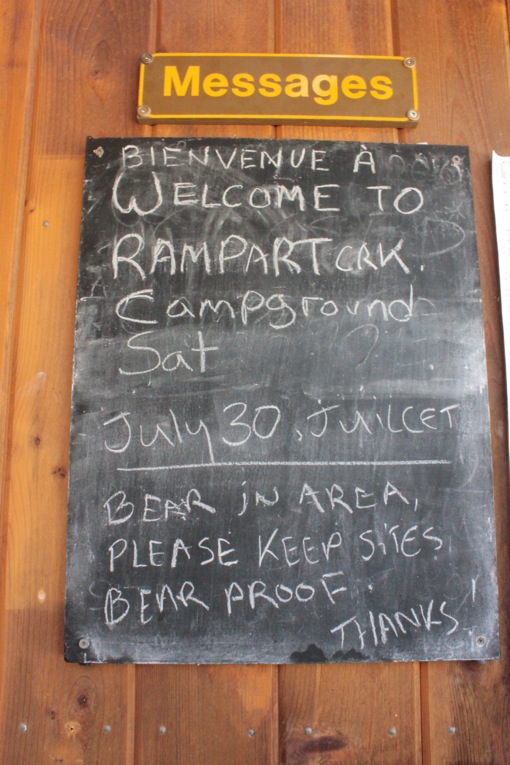 Messages
BIENVENUE À
WELCOME TO
RAMPART CRK.
Campground
Sat
July 30, JUILLET
BEAR IN AREA,
PLEASE KEEP SITES
BEAR PROOF.
THANKS!